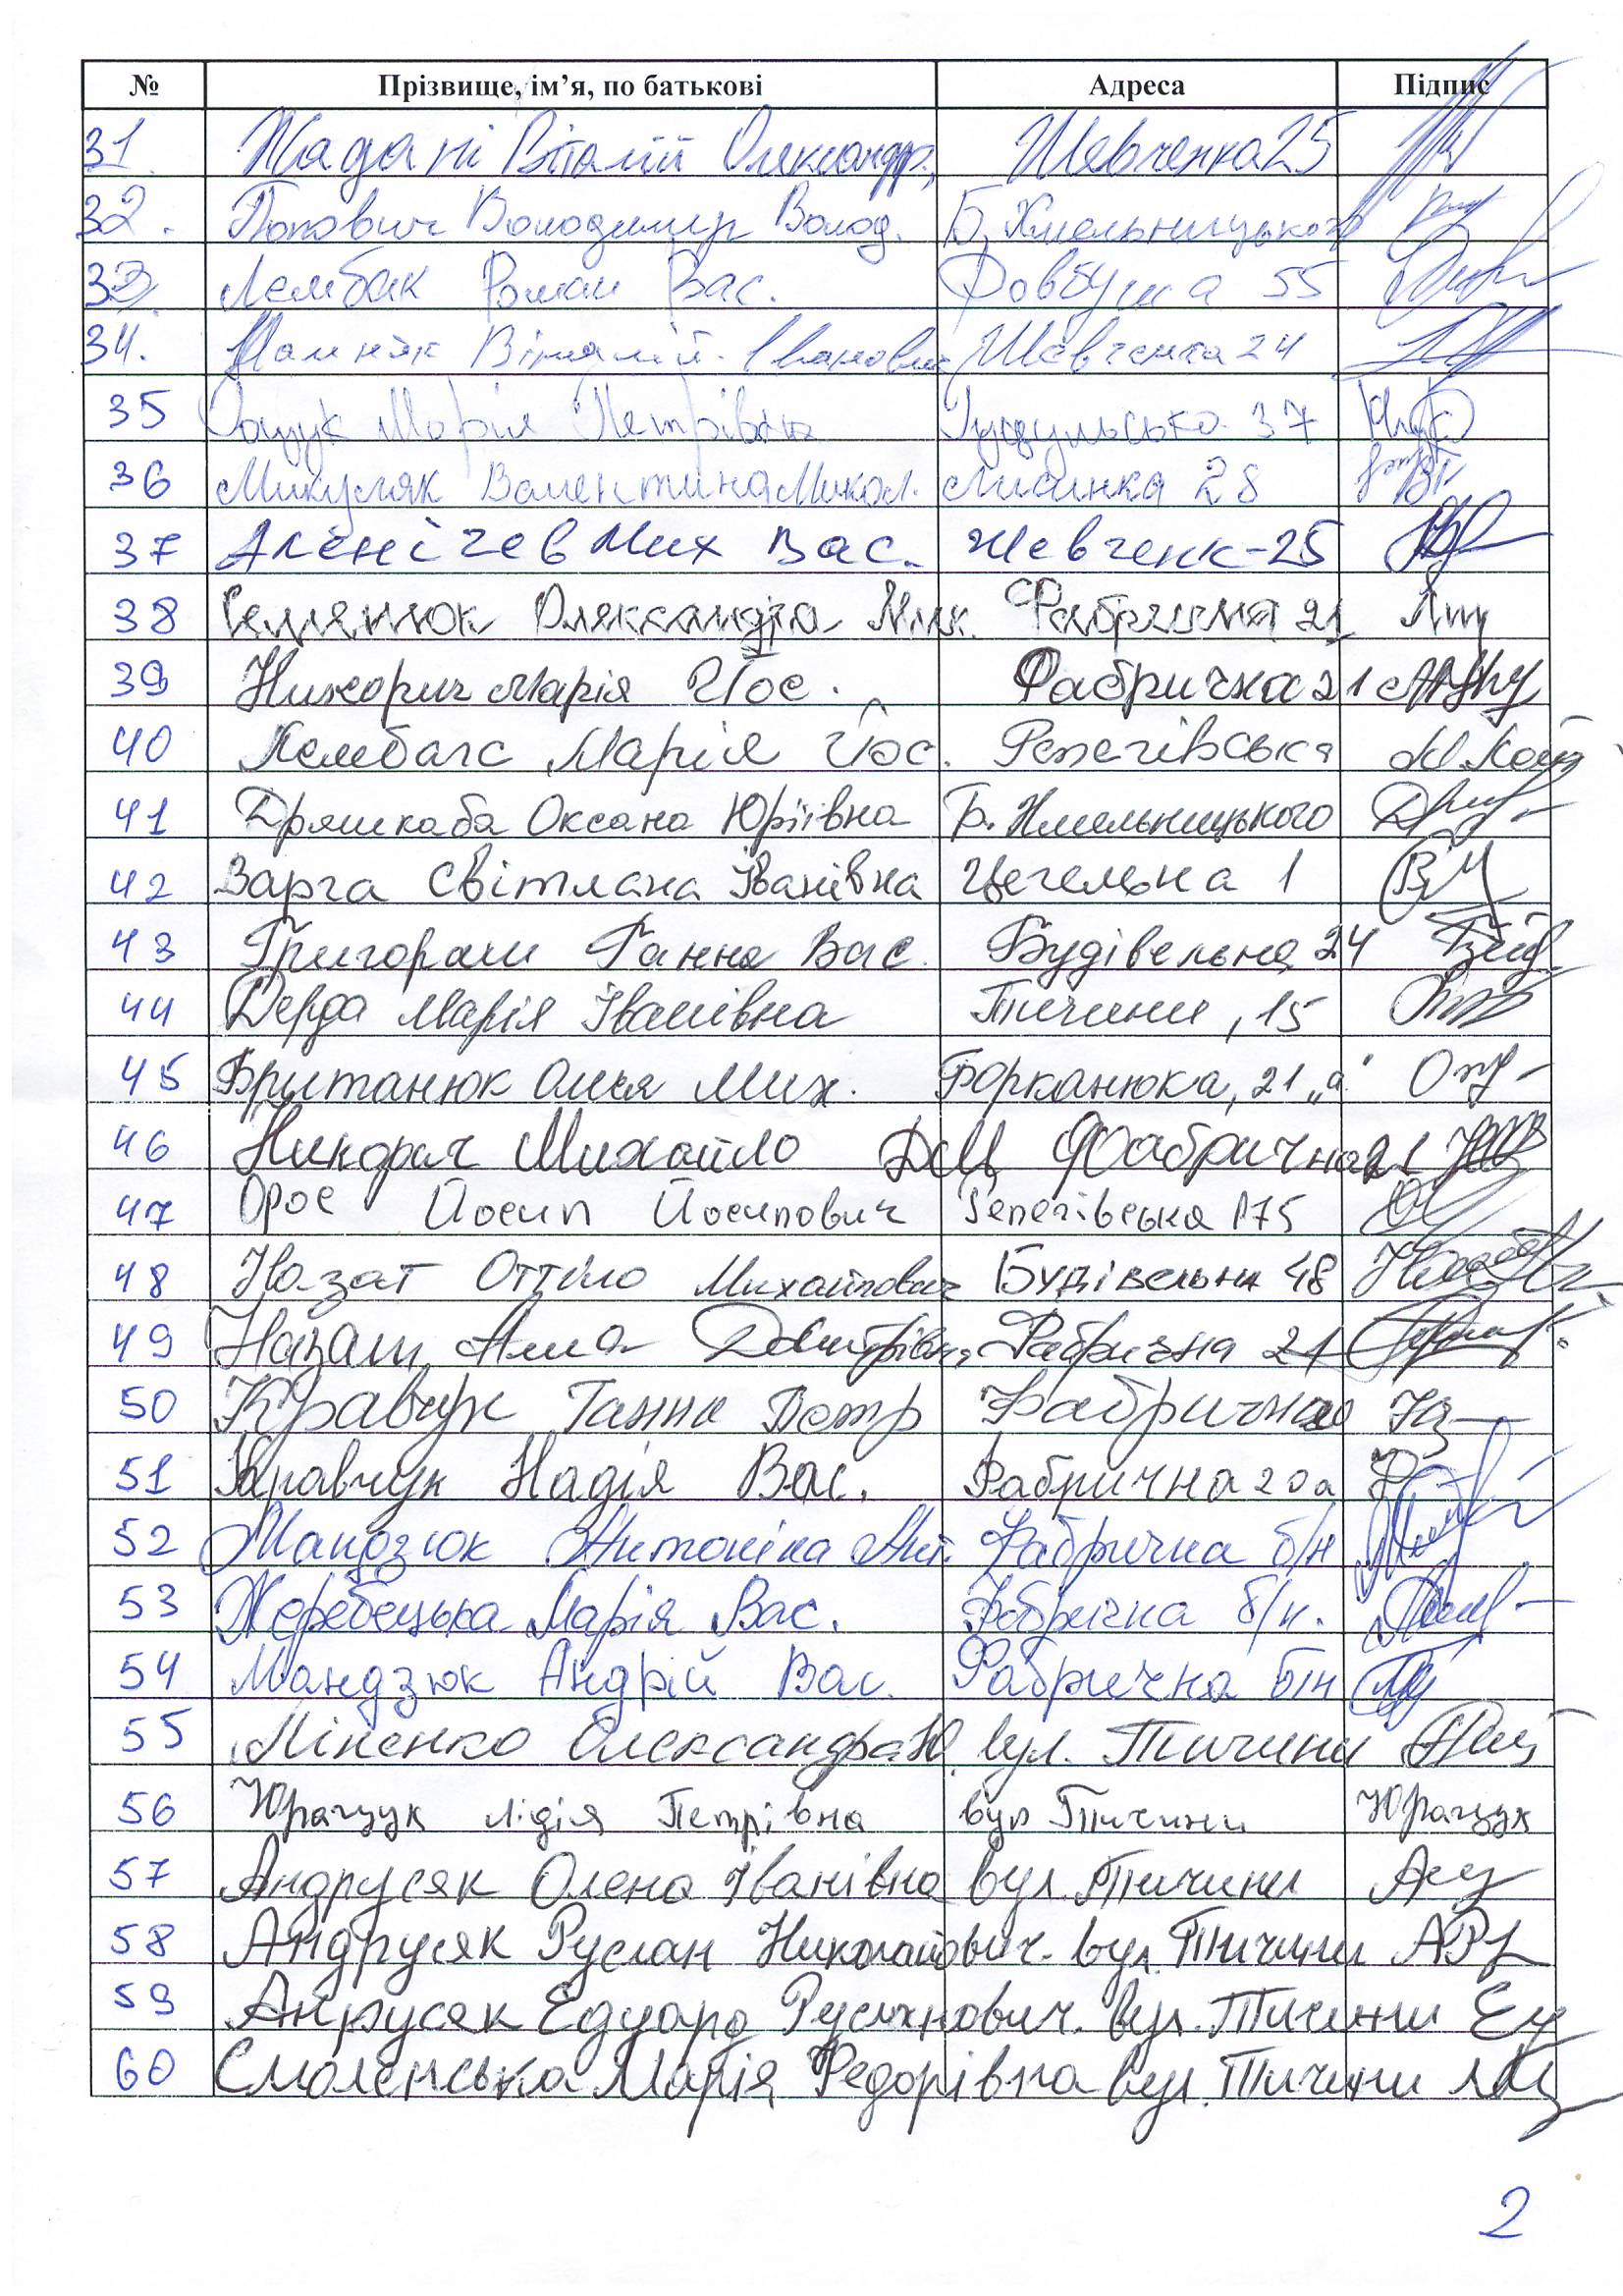 № Прізвище, ім’я, по батькові Адреса Підпис
31. Віталій Олександр. Шевченка 25
32. Попович Володимир Волод. Б. Хмельницького
33. Лембак Роман Вас. Довбуша 55
34. Віталій Іванович Шевченка 24
35 Марія Петрівна Гуцульська 37
36 Микуляк Валентина Микол. Лисинка 28
37 Аленічев Мих Вас. Шевченк-25
38 Семянюк Олександра Мик. Фабрична 21
39 Марія Йос. Фабрична 21
40 Марія Йос. Репегівська
41 Дряшкаба Оксана Юріївна Б. Хмельницького
42 Варга Світлана Іванівна Цегельна 1
43 Григораш Ганна Вас. Будівельна 24
44 Дерда Марія Іванівна Тичини, 15
45 Британюк Олія Мих. Борканюка, 21 „а"
46 Михайло Фабрична 21
47 Орос Йосип Йосипович Репегівська 175
48 Назат Оттіло Михайлович Будівельна 48
49 Алла Дмитрівна Фабрична 21
50 Кравчук Ганна Петр Фабрична 20
51 Кравчук Надія Вас. Фабрична 20а
52 Мандзюк Антоніна Ант. Фабрична б/н
53 Жеребецька Марія Вас. Фабрична б/н.
54 Мандзюк Андрій Вас. Фабрична б/н
55 Міненко Олександра Ю. вул. Тичини
56 Юращук Лідія Петрівна вул Тичини Юращук
57 Андрусяк Олена Іванівна вул. Тичини
58 Андрусяк Руслан Николайович вул. Тичини
59 Анрусяк Едуард Русланович. вул. Тичини
60 Смоленська Марія Федорівна вул. Тичини
2